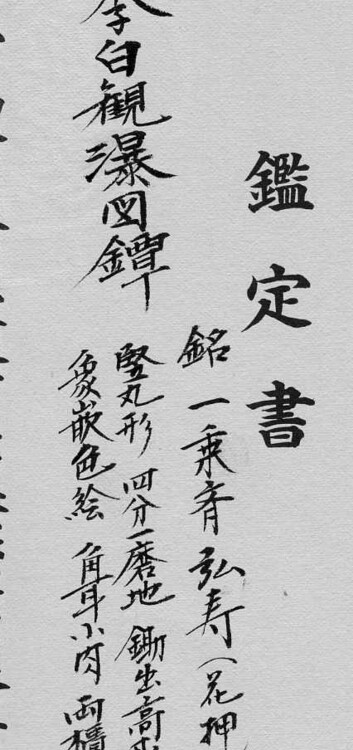 鑑定書
銘 一乗斉弘寿(花押
竪丸形 四分一磨地 鋤出高
象嵌色絵 角耳小肉 両櫃
李白観瀑図鐔